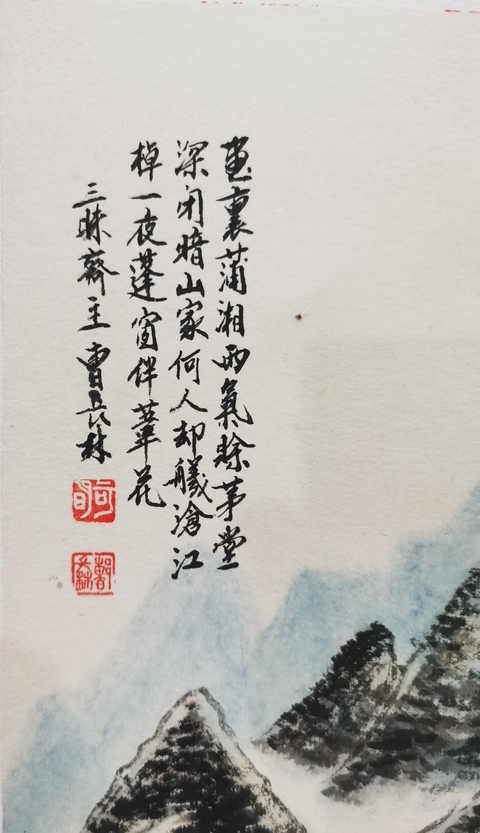 畫裏蒲湘雨氣賒茅堂
深闭暗山家何人却艤滄江
棹一夜蓬窗伴葦花
三昧齋主曹长林